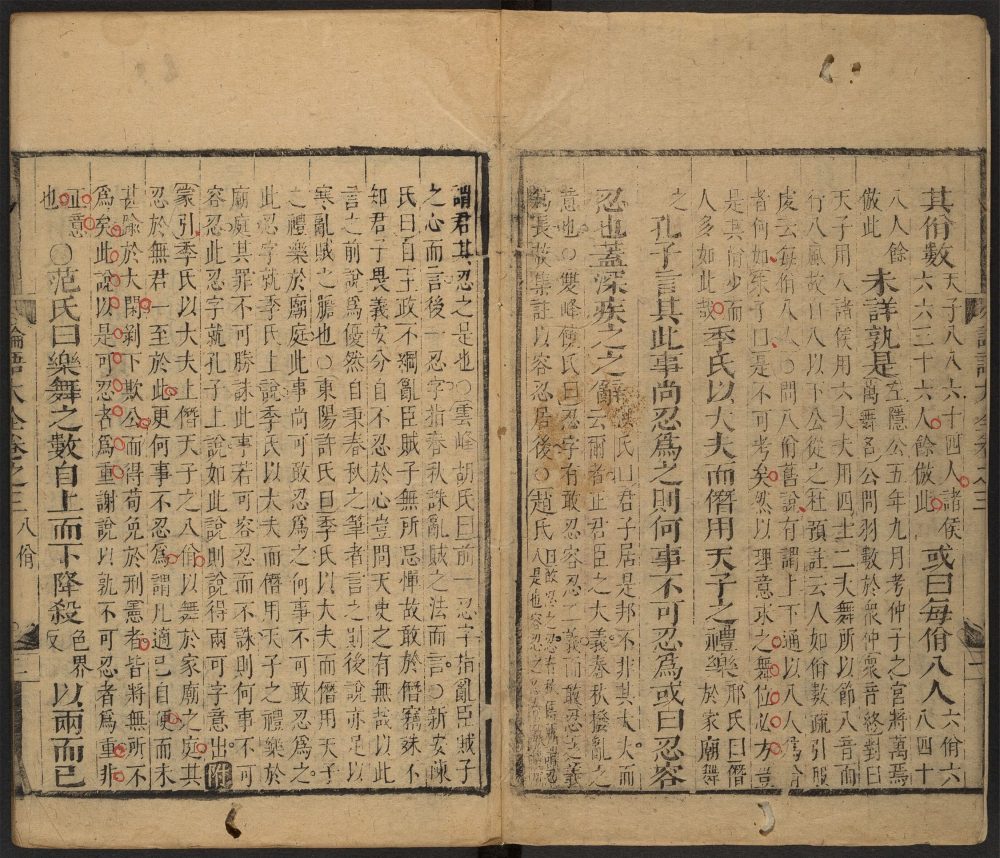 其佾數
天子八八六十四人諸侯
六六三十六人餘倣此
或曰每佾八人
六佾六
八四十
八人餘
倣此
未詳孰是
左隱公五年九月考仲子之宮將萬焉
萬舞名公問羽數於衆仲衆音終對曰
天子用八諸侯用六大夫用四士二夫舞所以節八音而
行八風故自八以下公從之杜預註云人如佾數疏引服
虔云每佾八人○問八佾舊說有謂上下通以八人爲佾
者何如朱子曰是不可考矣然以理意求之舞位必方豈
是其佾少而
人多如此哉
季氏以大夫而僭用天子之禮樂
邢氏曰僭
於家廟舞
之
孔子言其此事尚忍爲之則何事不可忍爲或曰忍容
忍也蓋深疾之之辭
氏曰君子居是邦不非其大夫而
云爾者正君臣之大義春秋撥亂之
意也○雙峰饒氏曰忍字有敢忍容忍二義而敢忍之義
爲長故集註以容忍居後○趙氏
謂君其忍之是也○雲峰胡氏曰前一忍字指亂臣賊子
之心而言後一忍字指春秋誅亂賊之法而言○新安陳
氏曰自王政不綱亂臣賊子無所忌憚故敢於僭竊殊不
知君子畏義安分自不忍於心豈問天吏之有無哉以此
言之前說爲優然自秉春秋之筆者言之則後說亦足以
寒亂賊之膽也○東陽許氏曰季氏以大夫而僭用天子
之禮樂於廟庭此事尚可敢忍爲之何事不可敢忍爲之
此忍字就季氏上說季氏以大夫而僭用天子之禮樂於
廟庭其罪不可勝誅此事若可容忍而不誅則何事不可
容忍此忍字就孔子上說如此說則說得兩可字意出附
蒙引季氏以大夫上僭天子之八佾以舞於家廟之庭其
忍於無君一至於此更何事不忍爲謂凡適已自便而未
甚於大閑剝下欺公而得苟免於刑憲者皆將無所不
爲矣此說以是可忍者爲重謝說以孰不可忍者爲重非
正意
也
○范氏曰樂舞之數自上而下降殺
色界
反
以兩而已
論語大全卷之三 八佾 二